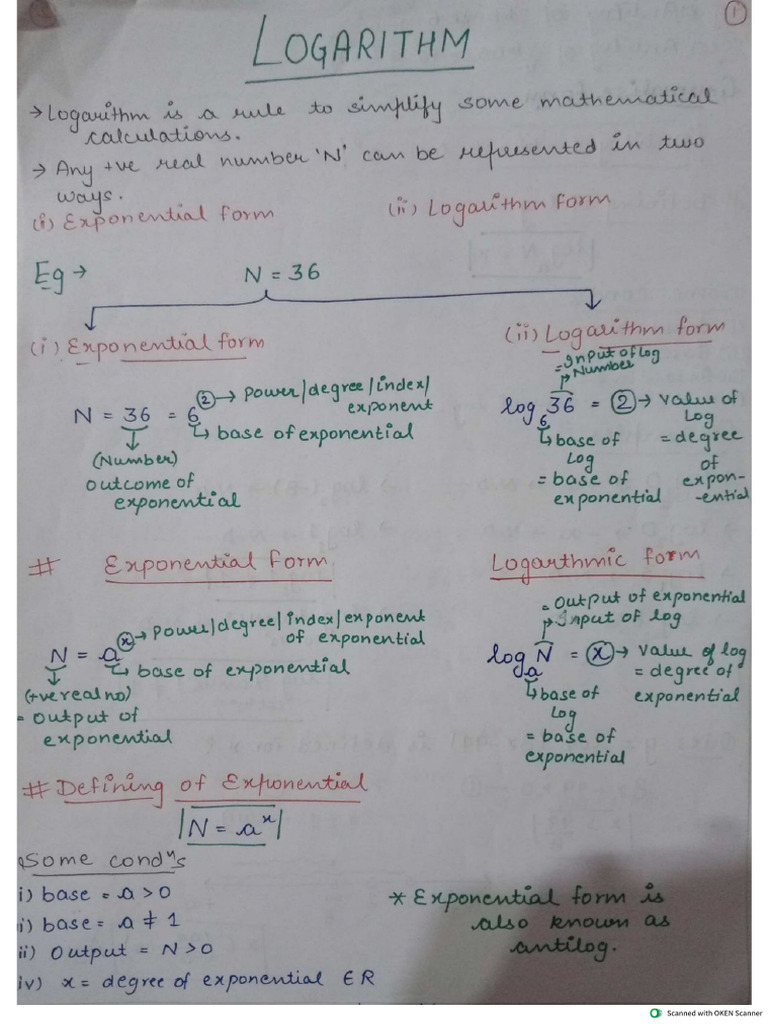 1
LOGARITHM
→ Logarithm is a rule to simplify some mathematical
calculations.
→ Any +ve real number 'N' can be represented in two
ways.
(i) Exponential form (ii) Logarithm form
Eg → N = 36
(i) Exponential form (ii) Logarithm form
= Input of log
Number
N = 36 = 6² → Power/degree/index/
exponent
↳ base of exponential
(Number)
outcome of
exponential
log₆ 36 = 2 → value of
Log
= degree
of
expon-
-ential
↳ base of
Log
= base of
exponential
# Exponential Form Logarthmic form
N = aˣ → Power/degree/index/exponent
of exponential
↳ base of exponential
(+ve real no)
= output of
exponential
= Output of exponential
Input of log
logₐ N = x → Value of log
= degree of
exponential
↳ base of
Log
= base of
exponential
# Defining of Exponential
|N = aˣ|
Some condⁿs
i) base = a > 0
i) base = a ≠ 1
ii) Output = N > 0
iv) x = degree of exponential ∈ R
* Exponential form is
also known as
antilog.
Scanned with OKEN Scanner